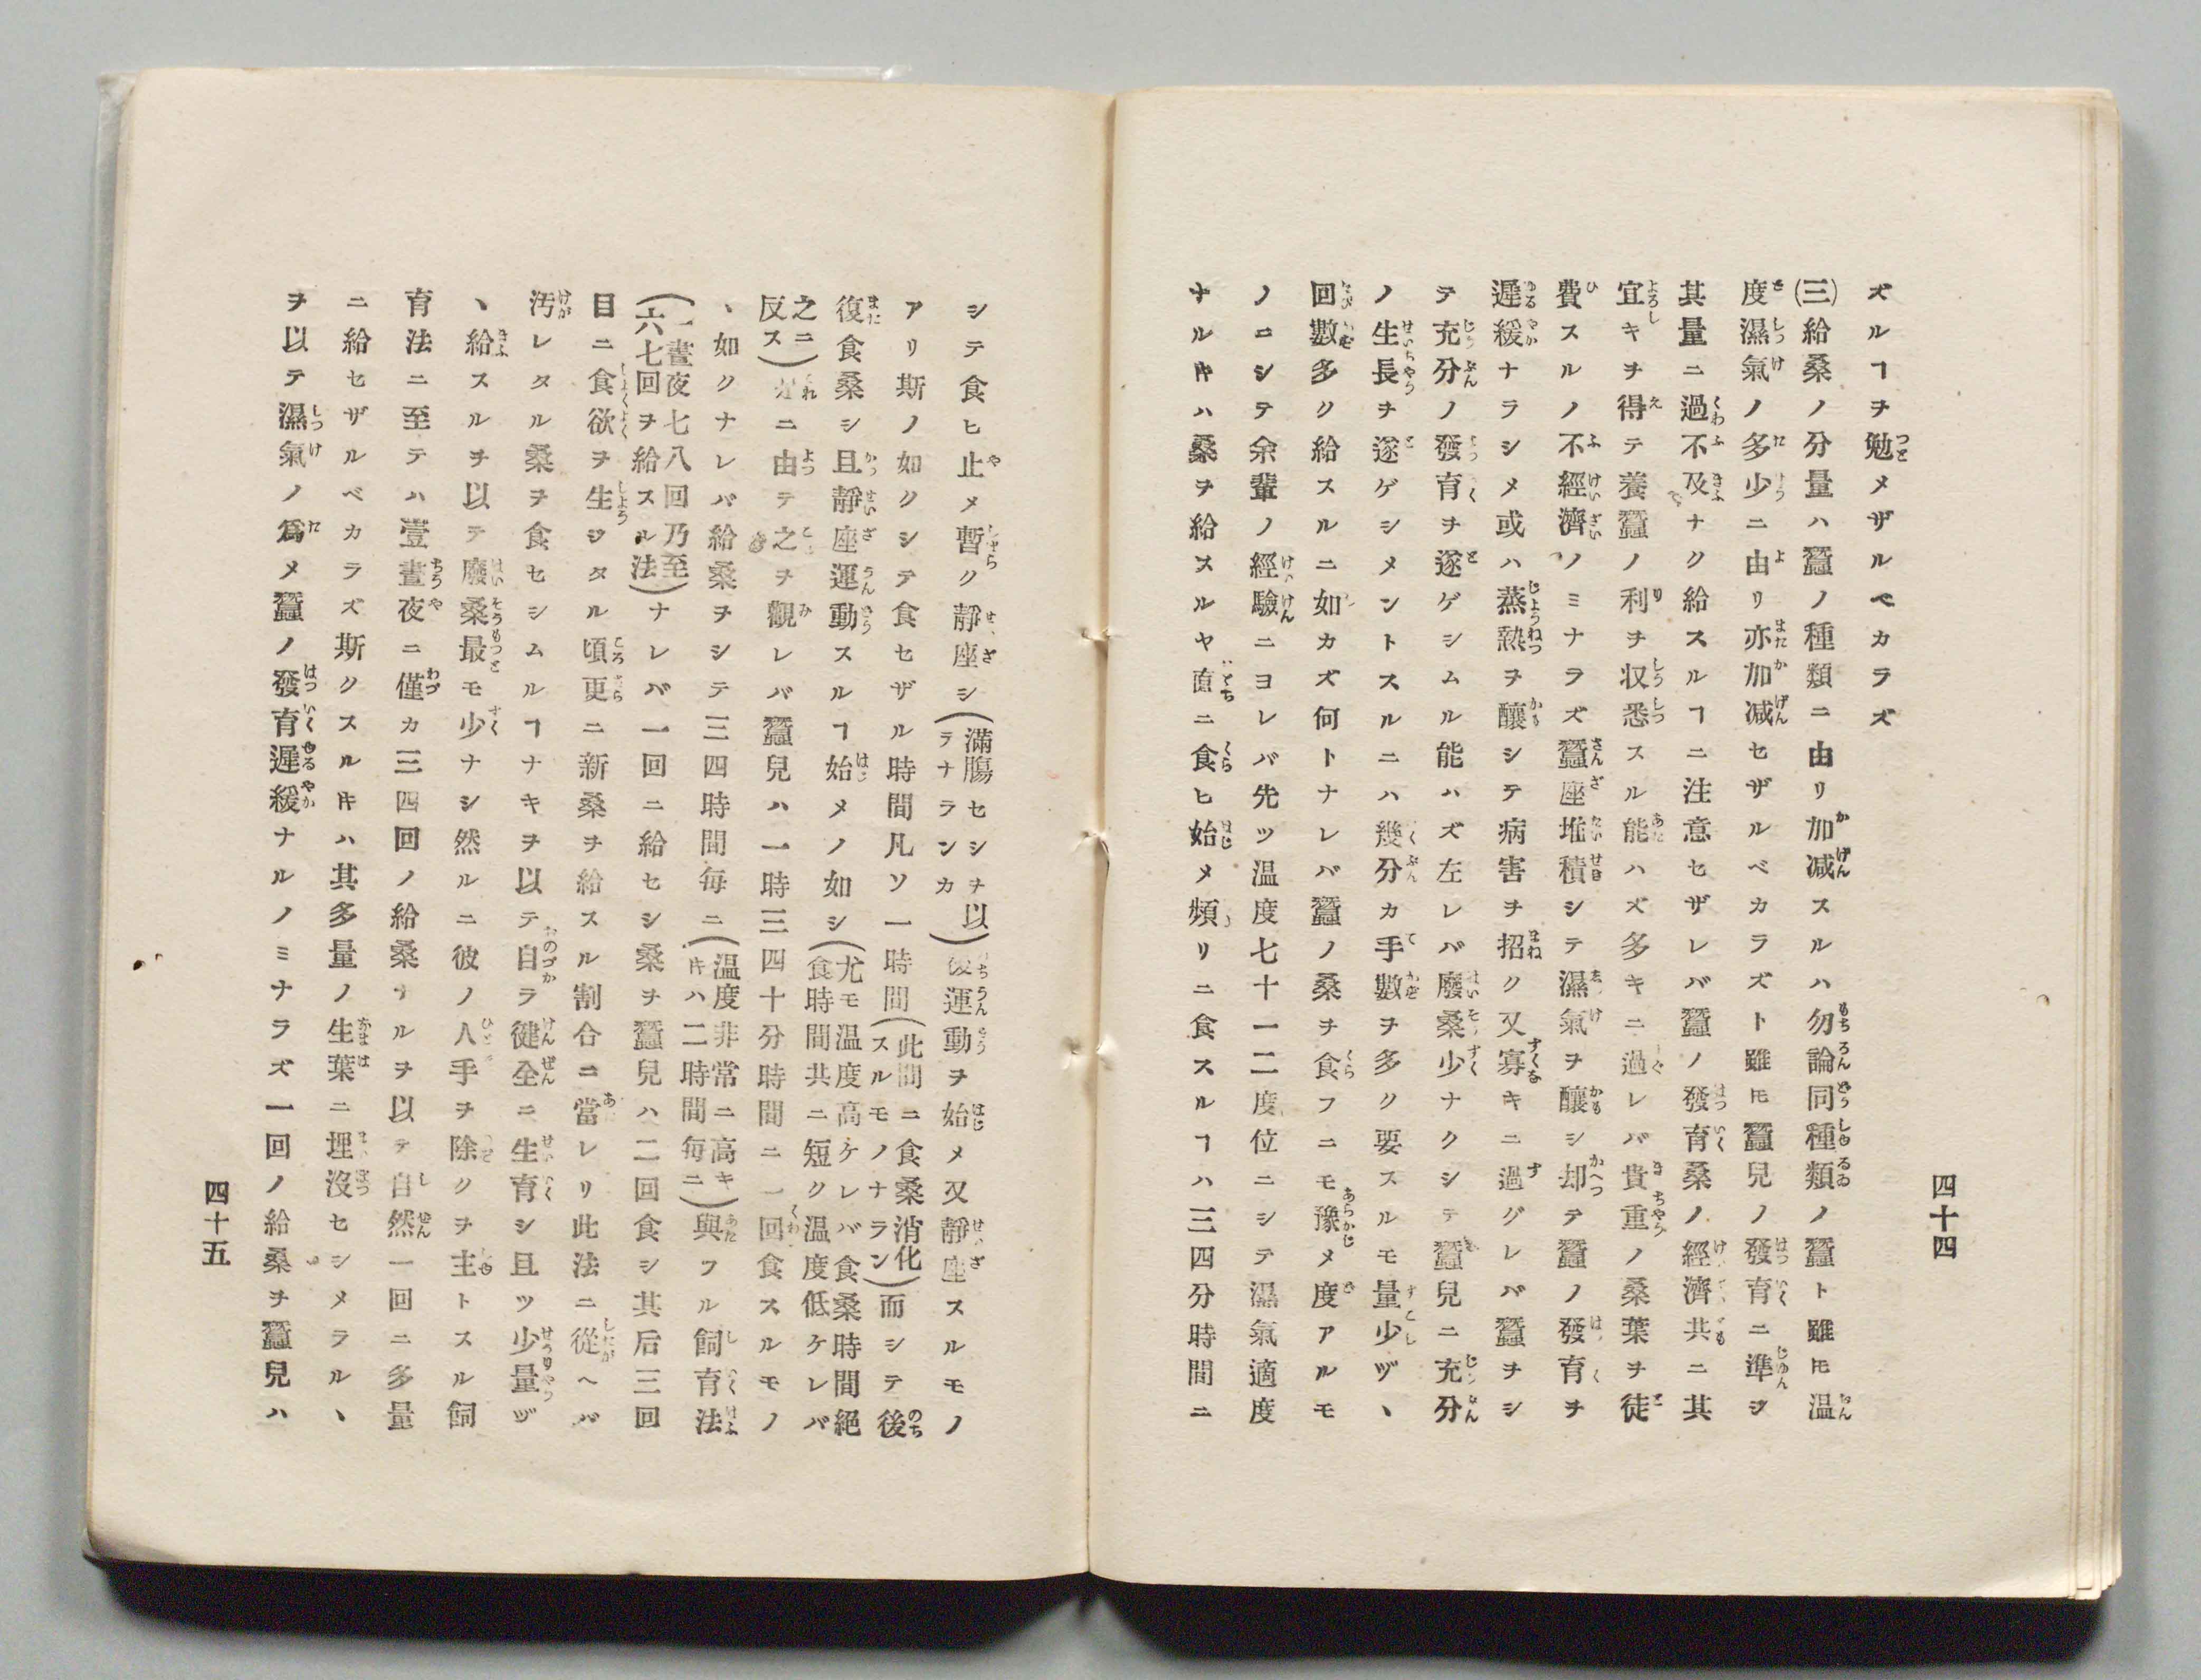 四十四
ズルヿヲ勉メザルベカラズ
㈢給桑ノ分量ハ蠶ノ種類ニ由リ加减スルハ勿論同種類ノ蠶ト雖𪜈温
度濕氣ノ多少ニ由リ亦加减セザルベカラズト雖𪜈蠶兒ノ發育ニ準ジ
其量ニ過不及ナク給スルヿニ注意セザレバ蠶ノ發育桑ノ經濟共ニ其
宜キヲ得テ養蠶ノ利ヲ収悉スル能ハズ多キニ過レバ貴重ノ桑葉ヲ徒
費スルノ不經濟ノミナラズ蠶座堆積シテ濕氣ヲ釀シ却テ蠶ノ發育ヲ
遲緩ナラシメ或ハ蒸熱ヲ釀シテ病害ヲ招ク又寡キニ過グレバ蠶ヲシ
テ充分ノ發育ヲ遂ゲシムル能ハズ左レバ廢桑少ナクシテ蠶兒ニ充分
ノ生長ヲ遂ゲシメントスルニハ幾分カ手數ヲ多ク要スルモ量少ヅヽ
回數多ク給スルニ如カズ何トナレバ蠶ノ桑ヲ食フニモ豫メ度アルモ
ノニシテ余輩ノ經驗ニヨレバ先ツ温度七十一二度位ニシテ濕氣適度
ナルキハ桑ヲ給スルヤ直ニ食ヒ始メ頻リニ食スルヿハ三四分時間ニ
シテ食ヒ止メ暫ク靜座シ(滿膓セシヲ以ラナランカ)後運動ヲ始メ又靜座スルモノ
アリ斯ノ如クシテ食セザル時間凡ソ一時間(此間ニ食桑消化スルモノナラン)而シテ後
復食桑シ且靜座運動スルヿ始メノ如シ(尤モ温度高ケレバ食桑時間絕食時間共ニ短ク温度低ケレバ
之ニ反ス)是ニ由テ之ヲ觀レバ蠶兒ハ一時三四十分時間ニ一回食スルモノ
ヽ如クナレバ給桑ヲシテ三四時間毎ニ(温度非常ニ高キキハ二時間毎ニ)與フル飼育法
(一晝夜七八回乃至六七回ヲ給スル法)ナレバ一回ニ給セシ桑ヲ蠶兒ハ二回食シ其后三回
目ニ食欲ヲ生ジタル頃更ニ新桑ヲ給スル割合ニ當レリ此法ニ從ヘバ
汚レタル桑ヲ食セシムルヿナキヲ以テ自ラ健全ニ生育シ且ツ少量ヅ
ヽ給スルヲ以テ廢桑最モ少ナシ然ルニ彼ノ人手ヲ除クヲ主トスル飼
育法ニ至テハ壹晝夜ニ僅カ三四回ノ給桑ナルヲ以テ自然一回ニ多量
ニ給セザルベカラズ斯クスルキハ其多量ノ生葉ニ埋沒セシメラルヽ
ヲ以テ濕氣ノ爲メ蠶ノ發育遲緩ナルノミナラズ一回ノ給桑ヲ蠶兒ハ
四十五